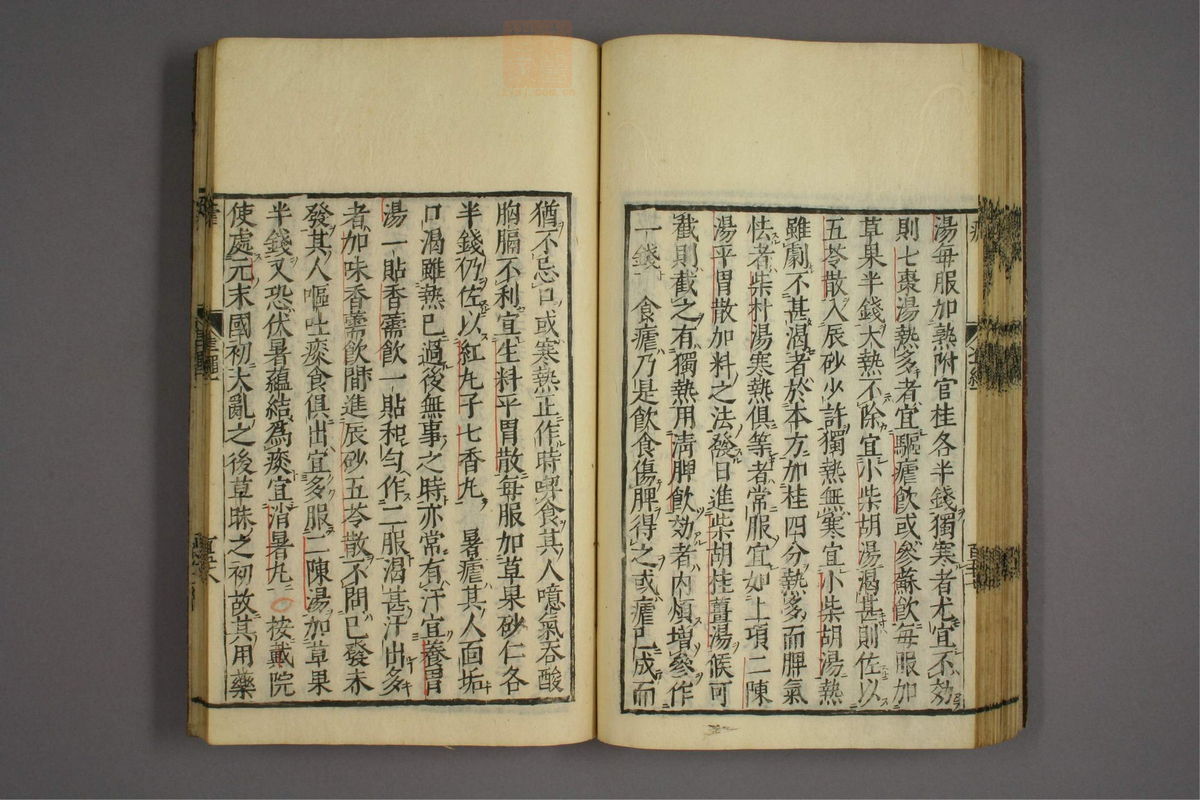 湯每服加熟附官桂各半錢獨寒者尤宜不効
則七棗湯熱多者宜驅瘧飲或參蘇飲每服加
草果半錢大熱不除宜小柴胡湯渴甚則佐以
五苓散入辰砂少許獨熱無寒宜小柴胡湯熱
雖劇不甚渴者於本方加桂四分熱多而脾氣
怯者柴朴湯寒熱俱等者常服宜如上項二陳
湯平胃散加料之法發日進柴胡桂薑湯候可
截則截之有獨熱用淸脾飲効者內煩增參作
一錢 食瘧乃是飲食傷脾得之或瘧已成而
猶不忌口或寒熱止作時喫食其人噫氣吞酸
胸膈不利宜生料平胃散每服加草果砂仁各
半錢仍佐以紅丸子七香丸 暑瘧其人面垢
口渴雖熱已過後無事之時亦常有汗宜養胃
湯一貼香薷飲一貼和勻作二服渴甚汗出多
者加味香薷飲間進辰砂五苓散不問已發未
發其人嘔吐痰食俱出宜多服二陳湯加草果
半錢又恐伏暑蘊結爲痰宜消暑丸 按戴院
使處元末國初大亂之後草昧之初故其用藥